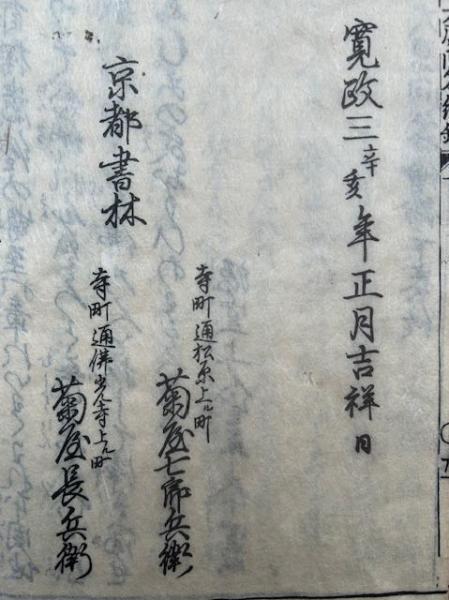 寛政三辛亥年正月吉祥日
京都書林
寺町通松原上ル町
菊屋七郎兵衛
寺町通佛光寺上ル町
菊屋長兵衛